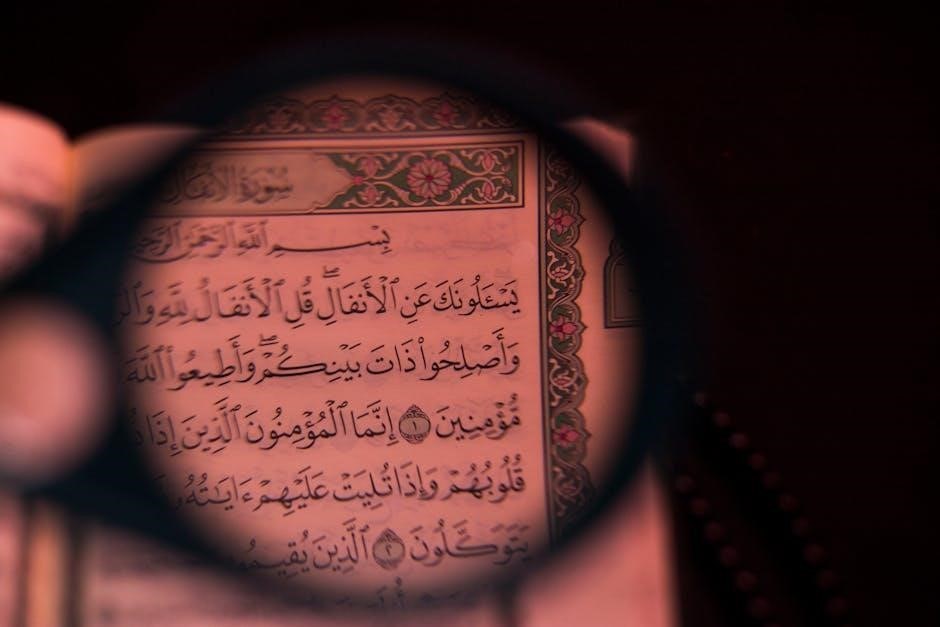 سُورَةُ الأَنفَال
بِسْمِ ٱللَّهِ ٱلرَّحْمَٰنِ ٱلرَّحِيمِ
يَسْـَٔلُونَكَ عَنِ ٱلْأَنفَالِ ۖ قُلِ ٱلْأَنفَالُ لِلَّهِ
وَأَصْلِحُوا۟ ذَاتَ بَيْنِكُمْ ۖ وَأَطِيعُوا۟ ٱللَّهَ
مُّؤْمِنِينَ ١ إِنَّمَا ٱلْمُؤْمِنُونَ ٱلَّذِينَ إِذَا
قُلُوبُهُمْ وَإِذَا تُلِيَتْ عَلَيْهِمْ ءَايَٰتُهُۥ
يَتَوَكَّلُونَ ٢ ٱلَّذِينَ يُقِيمُو